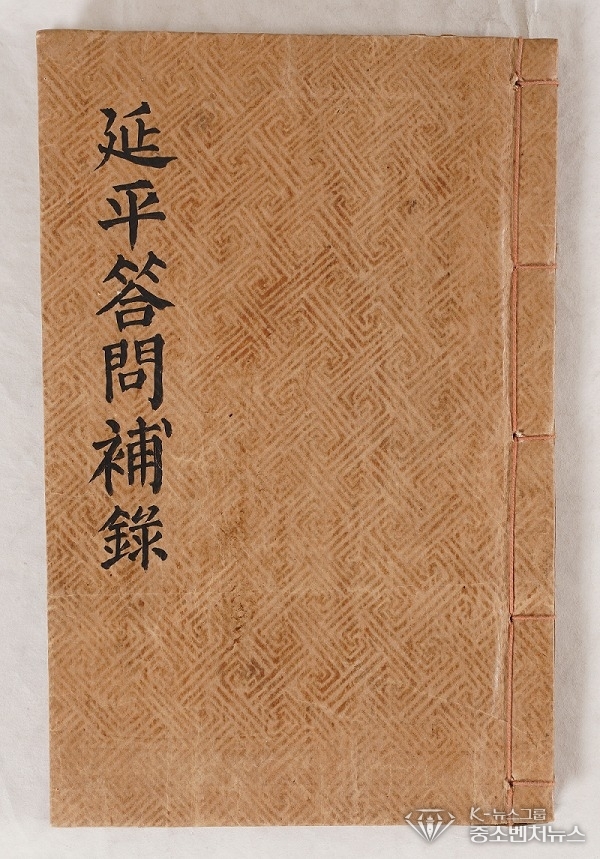 延平答問補錄
K-뉴스그룹
중소벤처뉴스